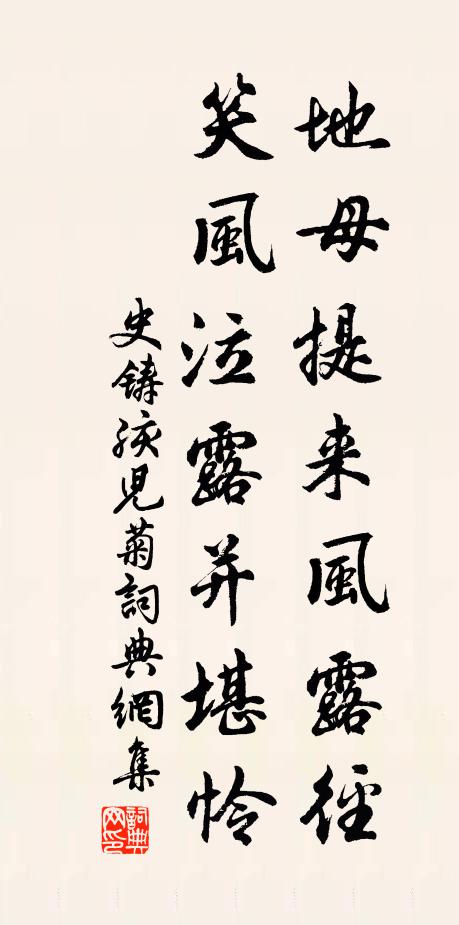 地母提来風露徑
笑風泣露并堪怜
史鑄孩児菊詞典網集
詞典網印